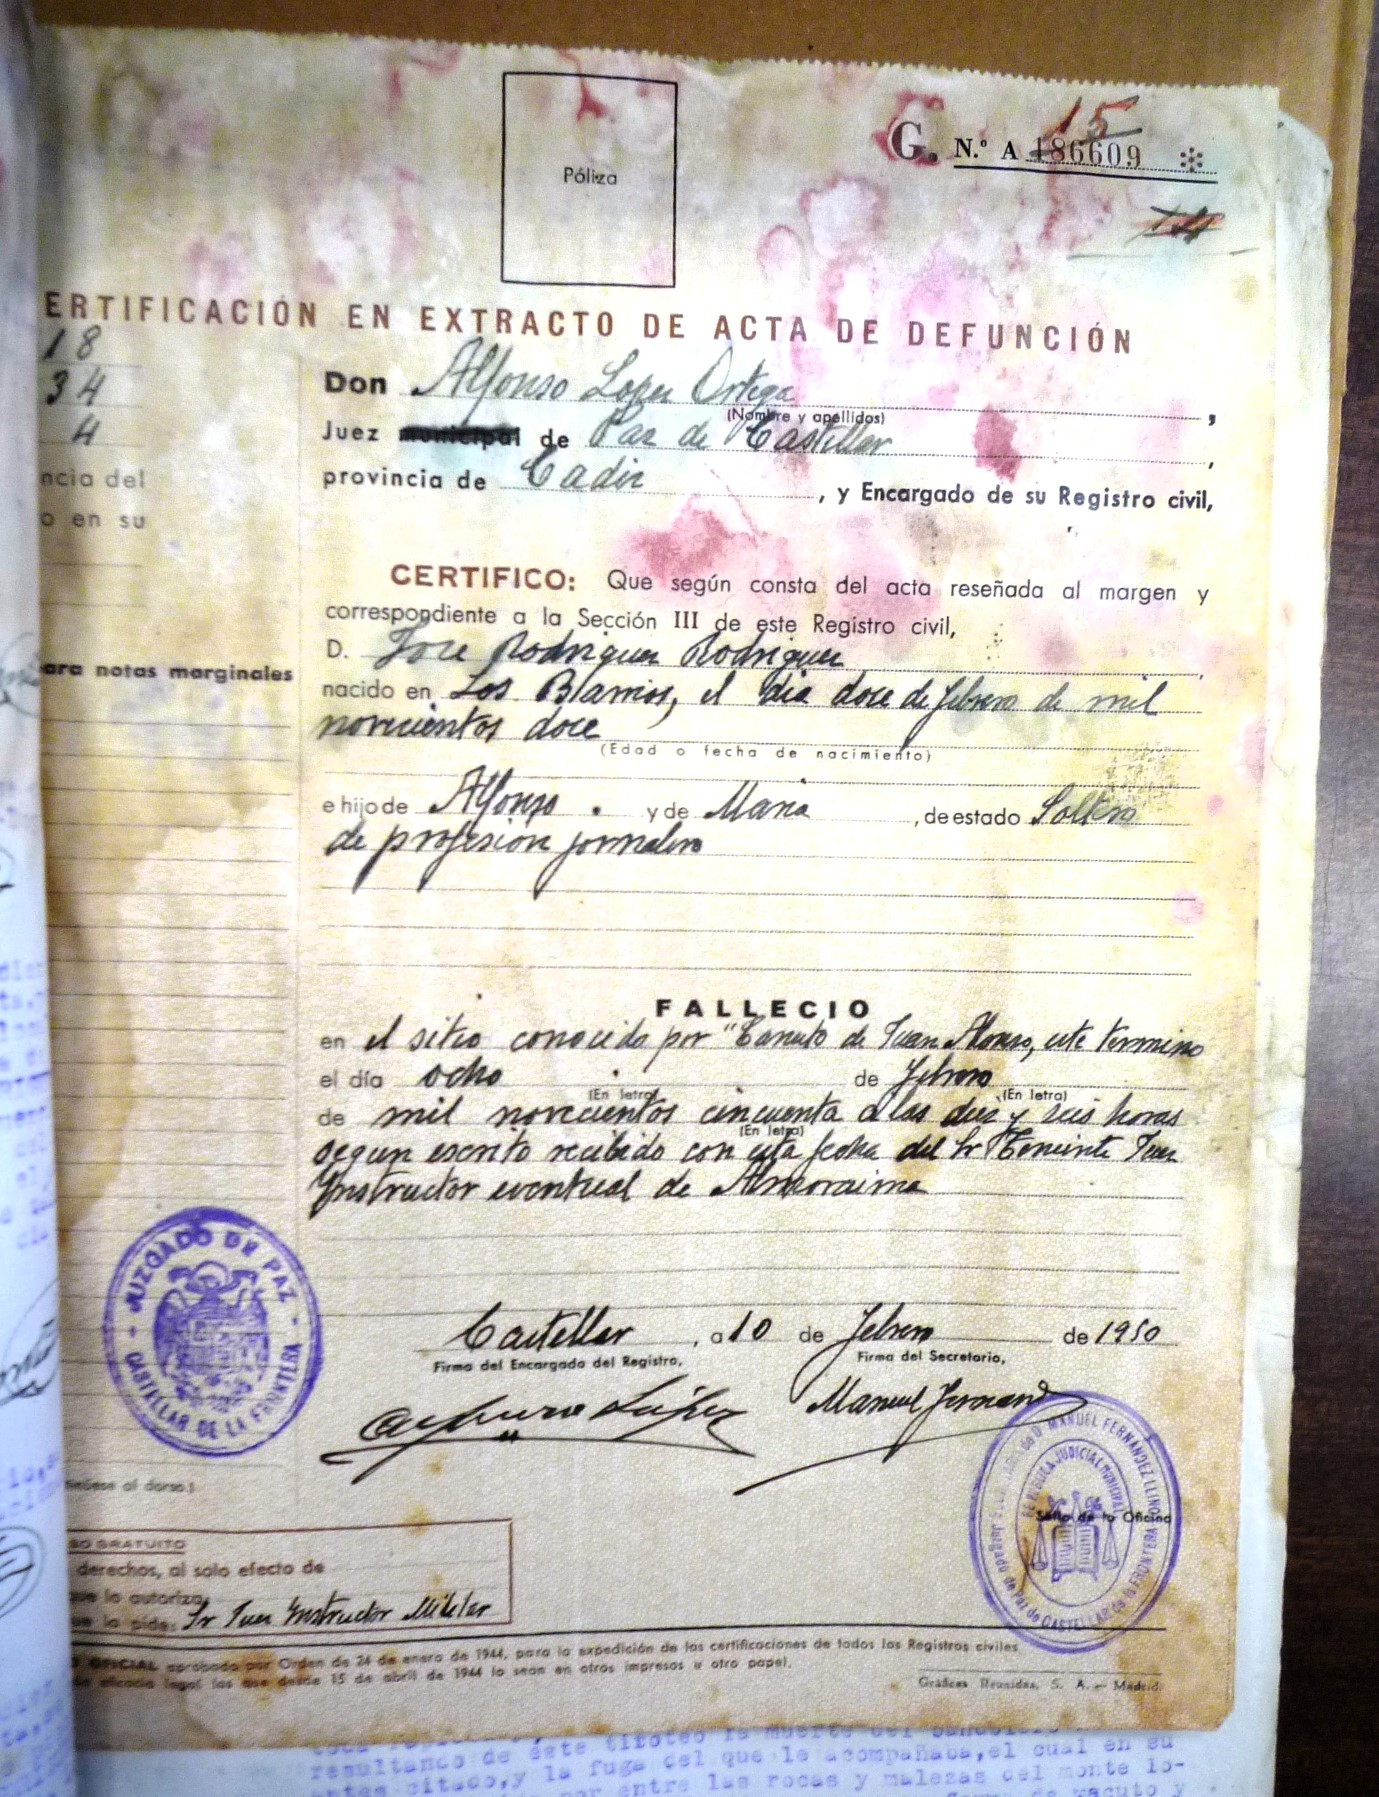 Póliza
15
G. N.º A 186609
14
ERTIFICACIÓN EN EXTRACTO DE ACTA DE DEFUNCIÓN
18
34
4
ncia del
o en su
ara notas marginales
Don Alfonso Lopez Ortega,
(Nombre y apellidos)
Juez municipal de Paz de Castellar,
provincia de Cadiz, y Encargado de su Registro civil,
CERTIFICO: Que según consta del acta reseñada al margen y
correspondiente a la Sección III de este Registro civil,
D. Jose Rodriguez Rodriguez,
nacido en Los Barrios, el dia doce de febrero de mil
novecientos doce
(Edad o fecha de nacimiento)
e hijo de Alfonso. y de Maria, de estado Soltero
de profesión jornalero
FALLECIO
en el sitio conocido por "Canuto de Juan Alonso, este termino
el día ocho de febrero
(En letra) (En letra)
de mil novecientos cincuenta a las diez y seis horas
(En letra)
segun escrito recibido con esta fecha del Sr Teniente Juez
Instructor eventual de Almoraima
JUZGADO DE PAZ
CASTILLAR DE LA FRONTERA
Castellar, a 10 de febrero de 1950
Firma del Encargado del Registro, Firma del Secretario,
Manuel Fernand
D. MANUEL FERNANDEZ
FE PUBLICA JUDICIAL MUNICIPAL
Juzgado de Paz de CASTELLAR de la FRONTERA
Sello de la Oficina
al dorso.)
SO GRATUITO
derechos, al solo efecto de
que lo autoriza,
ue lo pide: Sr Juez Instructor Militar
O OFICIAL aprobado por Orden de 24 de enero de 1944, para la expedición de las certificaciones de todos los Registros civiles
de eficacia legal las que desde 15 de abril de 1944 lo sean en otros impresos u otro papel.
Gráficas Reunidas, S. A.—Madrid.
este tiroteo la muerte del
resultando de éste tiroteo la muerte del
y la fuga del que le acompañaba, el cual en su
por entre las rocas y malezas del monte lo-